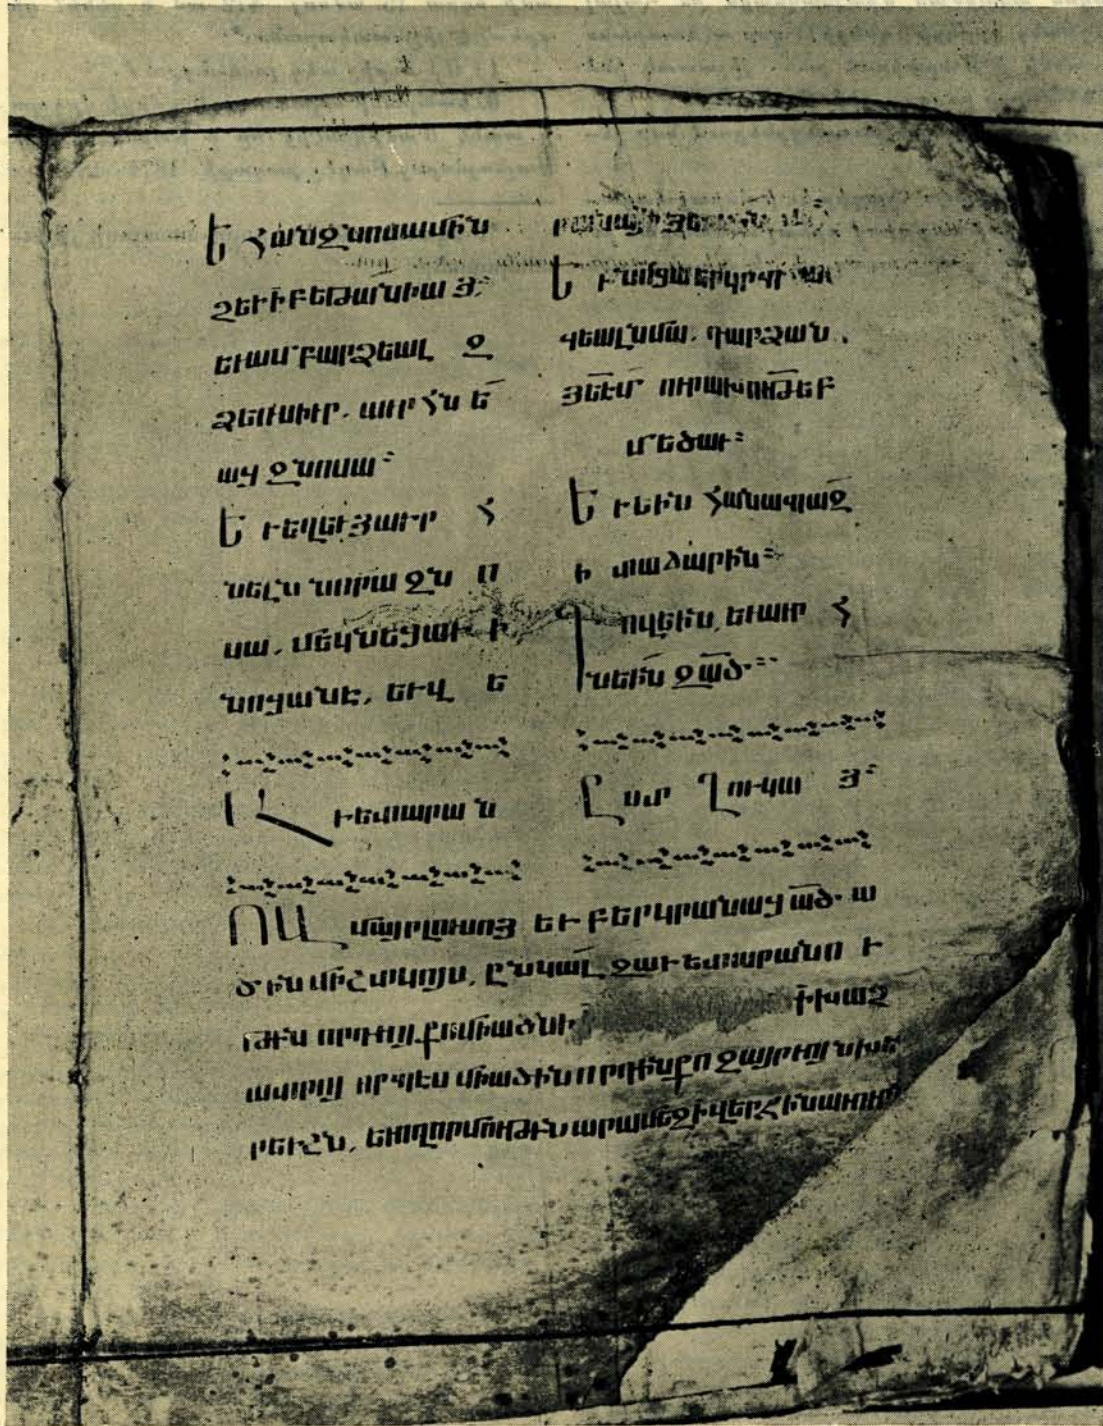 Ե հան զնոսա մին
չեւ ի բեթանիա յ:
եւ ամբարձեալ զ
ձեռս իւր. աւրհնե
աց զնոսա:
Եւ եղեւ յաւր հ
նելն նորա զն ո
սա, մեկնեցաւ ի
նոցանէ, եւ վ ե
րանայր յերկինս:
Եւ նոցա երկիր պա
գեալ նմա. դարձան,
յեէմ ուրախութեբ
մեծաւ:
Եւ էին հանապազ
ի տաճարին:
Գովէին, եւ աւր հ
նէին զած:
Աւետարան
Ըստ Ղուկա յ:
ՈՎ մայր լուսոյ եւ բերկրանաց ած. ա
ծին միշտ կոյս, ընկալ զաւետարանո ւ
թիս որդւոյ քո միածնի ի խաչ
որպէս միածին որդին քո
եւ ողորմութիւն արասցէ ի վերջին աւուր